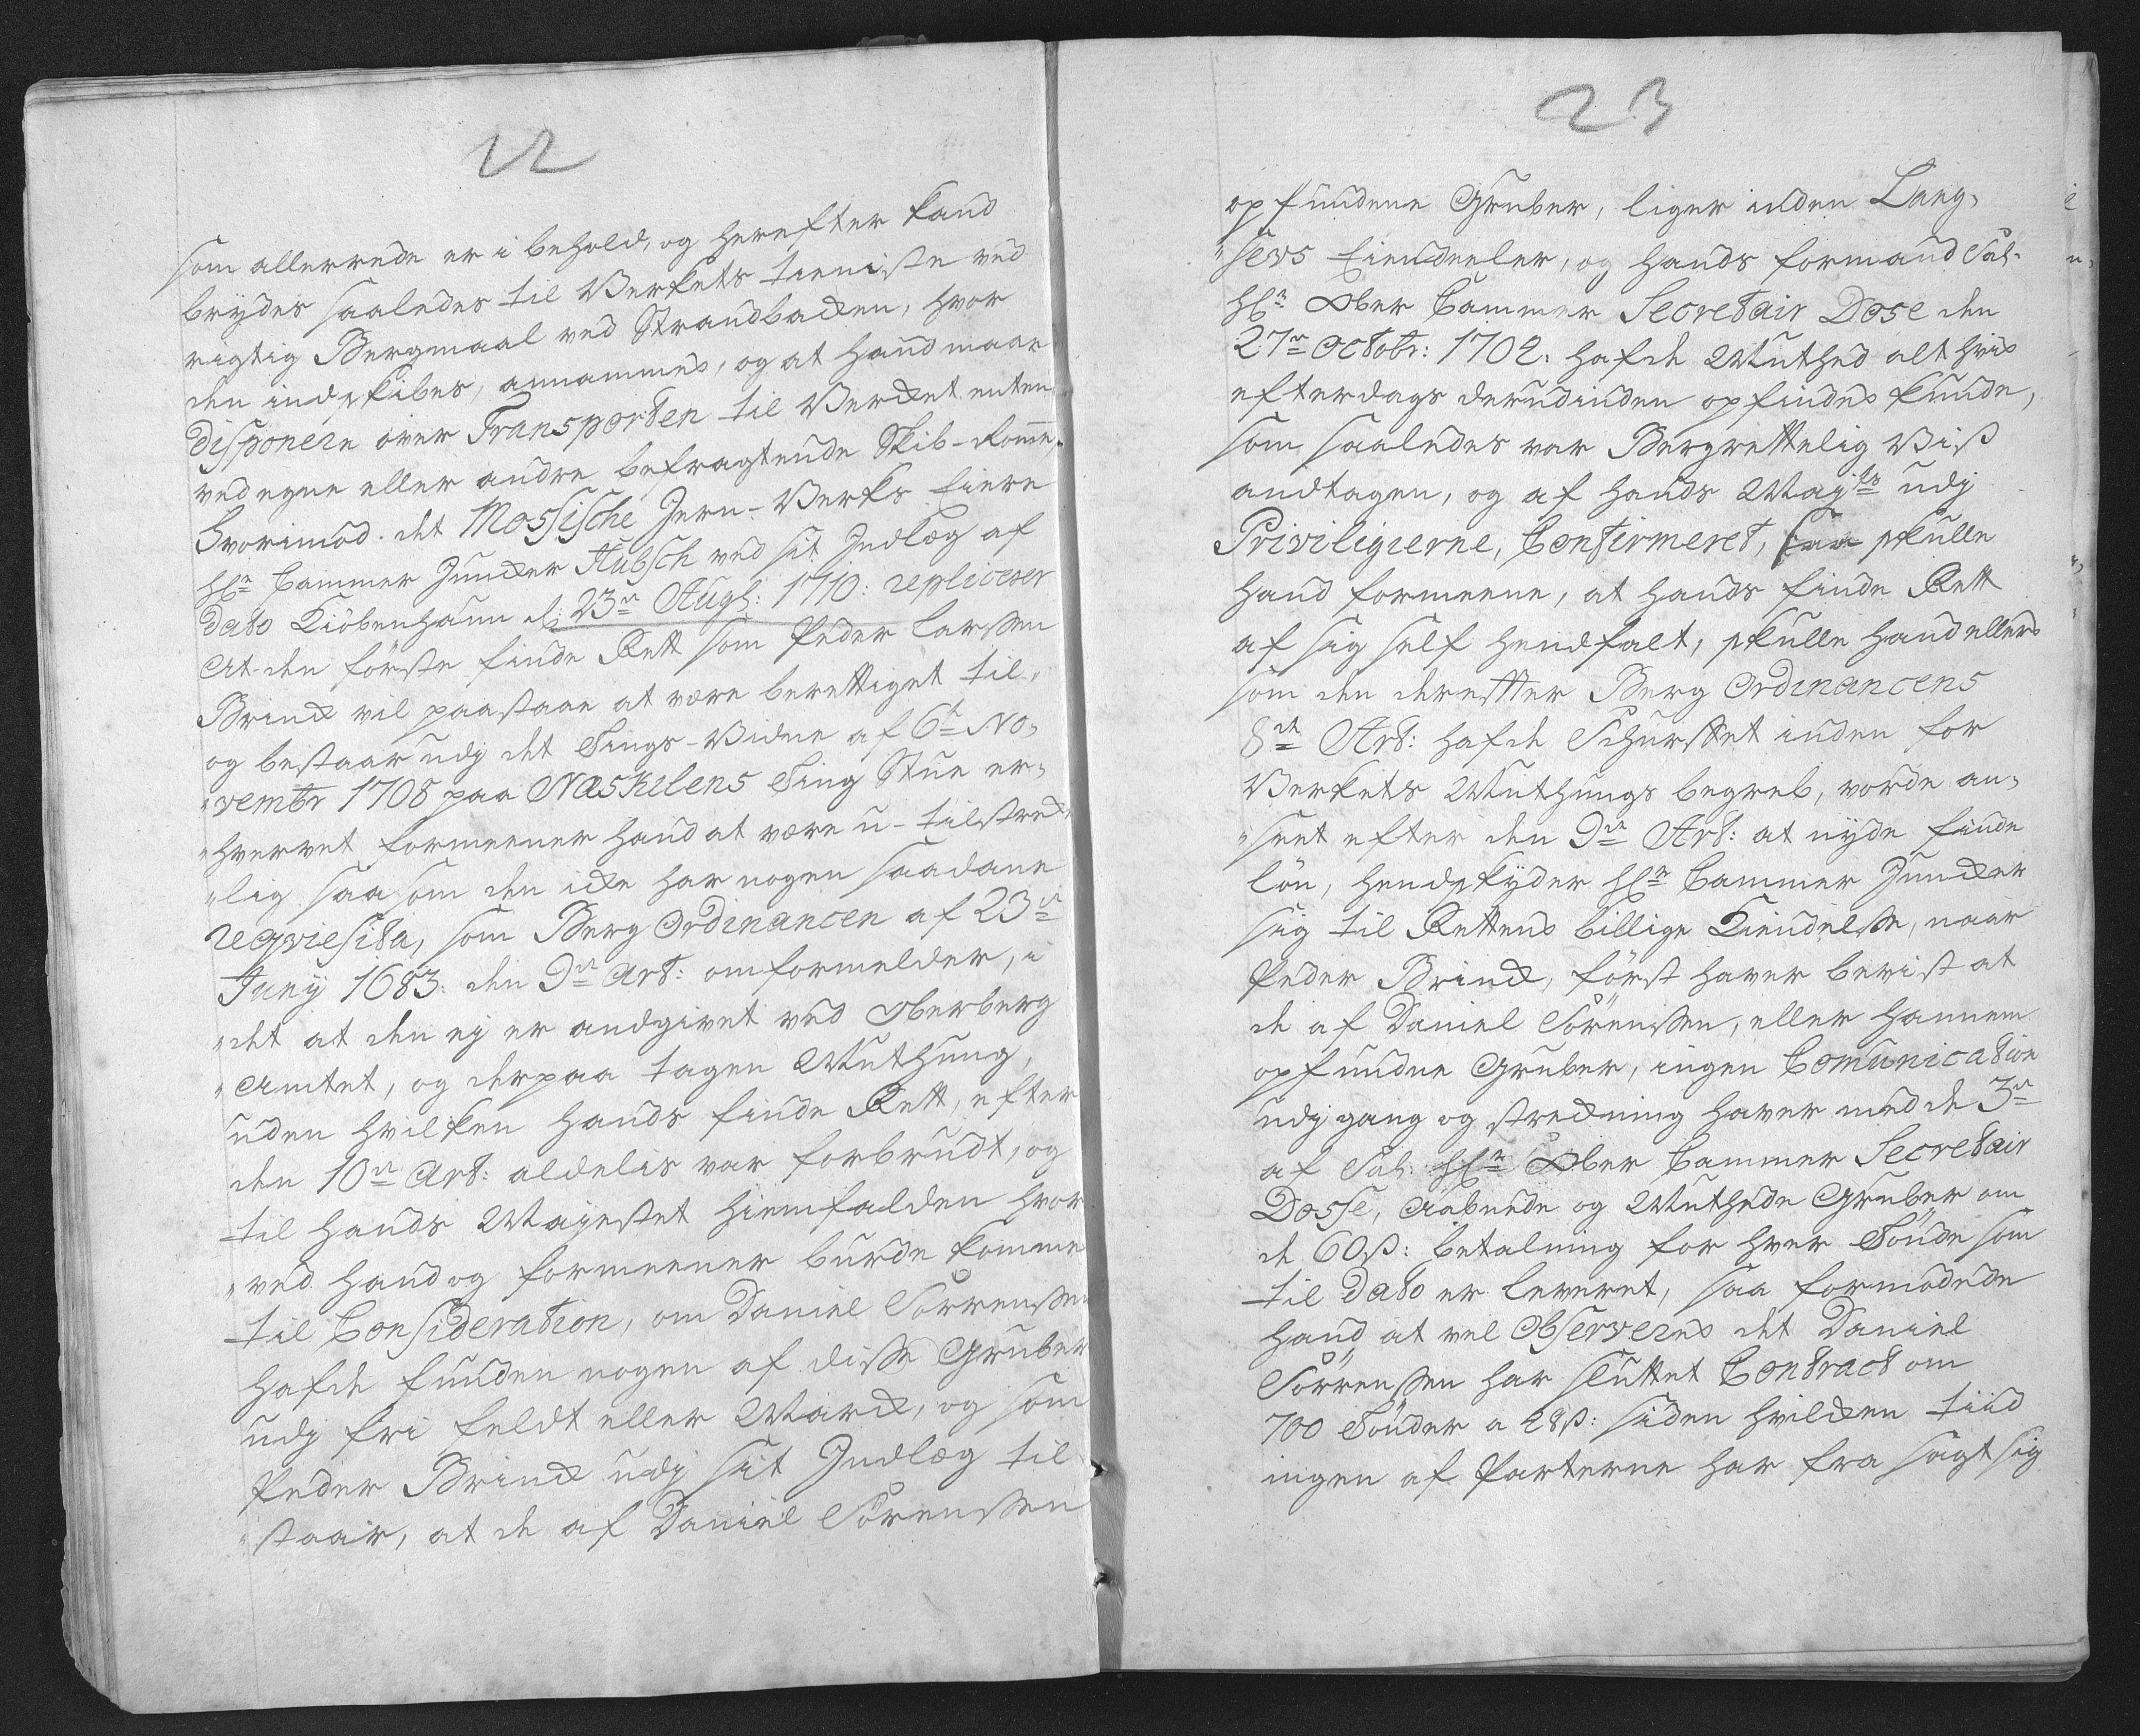 22
som allerrede er i behold, og herefter kand
brydes saaledes til Verkets tieniste ved
rigtig Bergmaal ved Strandbacken, hvor
den indskibes, annammes, og at hand maae
disponere över Transporten til Vercket enten
ved egne eller andre befragtende Skib-Romme,
Hvorimod det Mossische Jern-Verks Eiere
Hr Cammer Juncker Hübsch ved sit Indlæg af
dato Kiöbenhaun d: 23de Augs: 1710: repliceser
At den förste finde Rett som Peder Larssen
Brinck vil paastaae at være berettiget til,
og bestaar udj det Tings-Vidne af 6te No-
"vembr 1708 paa Næskilens Ting Stue er-
"hvervet formeener hand at være u-tilstreck-
"lig saasom den icke har nogen saadane
reqviesita, som Berg Ordinancen af 23de
Juny 1683: den 9de Art: omformelder, i
"det at den ej er andgivet ved Oberberg
"Amtet, og derpaa tagen Muthung,
uden hvilken hands finde Rett, efter
den 10de Art: aldelis var forbrudt, og
til hands Mayestet hiemfalden hvor
"ved hand og formeener burde komme
til Consideration, om Daniel Sörrenssen
hafde funden nogen af disse Gruber
udj fri feldt eller Marck, og som
Peder Brinck udj sit Indlæg til-
"staar, at de af Daniel Sörenssen
23
opfundene Gruber, liger inden Lang-
"sevs Eiendeeler, og hands formand Sal.
Hr Ober Cammer Secretair Dose den
27de Octobr: 1702: hafde Muthed alt hvis
efterdags derudinden opfindes kunde,
som saaledes var Bergrettelig Viss
andtagen, og af hands Mayts udj
Priviligierne, Confirmeret, saa skulle
hand formeene, at hands finde Rett
af sig self hendfalt, skulle hand ellers
som den dereffter Berg Ordinancens
8de Art: hafde Schurffet inden for
Verkets Muthungs begreb, vorde an-
"seet efter den 9de Art: at nyde finde
lön, hendskyder Hr Cammer Juncker
sig til Rettens billige Kiendelsse, naar
Peder Brinck, först haver bevist at
de af Daniel Sörenssen, eller hannem
opfundne Gruber, ingen Comunication
udj gang og streckning haver med de 3de
af Sal: Hr Ober Cammer Secretair
Dosse, Aabnede og Muthede Gruber om
de 60ß: betalning for hver Tönde som
til dato er leveret, saa formodede
hand at vel Observeres det Daniel
Sörrenssen har sluttet Contract om
700 Tönder a 28ß: siden hvilcken tiid
ingen af Parterne har fra sagt sig